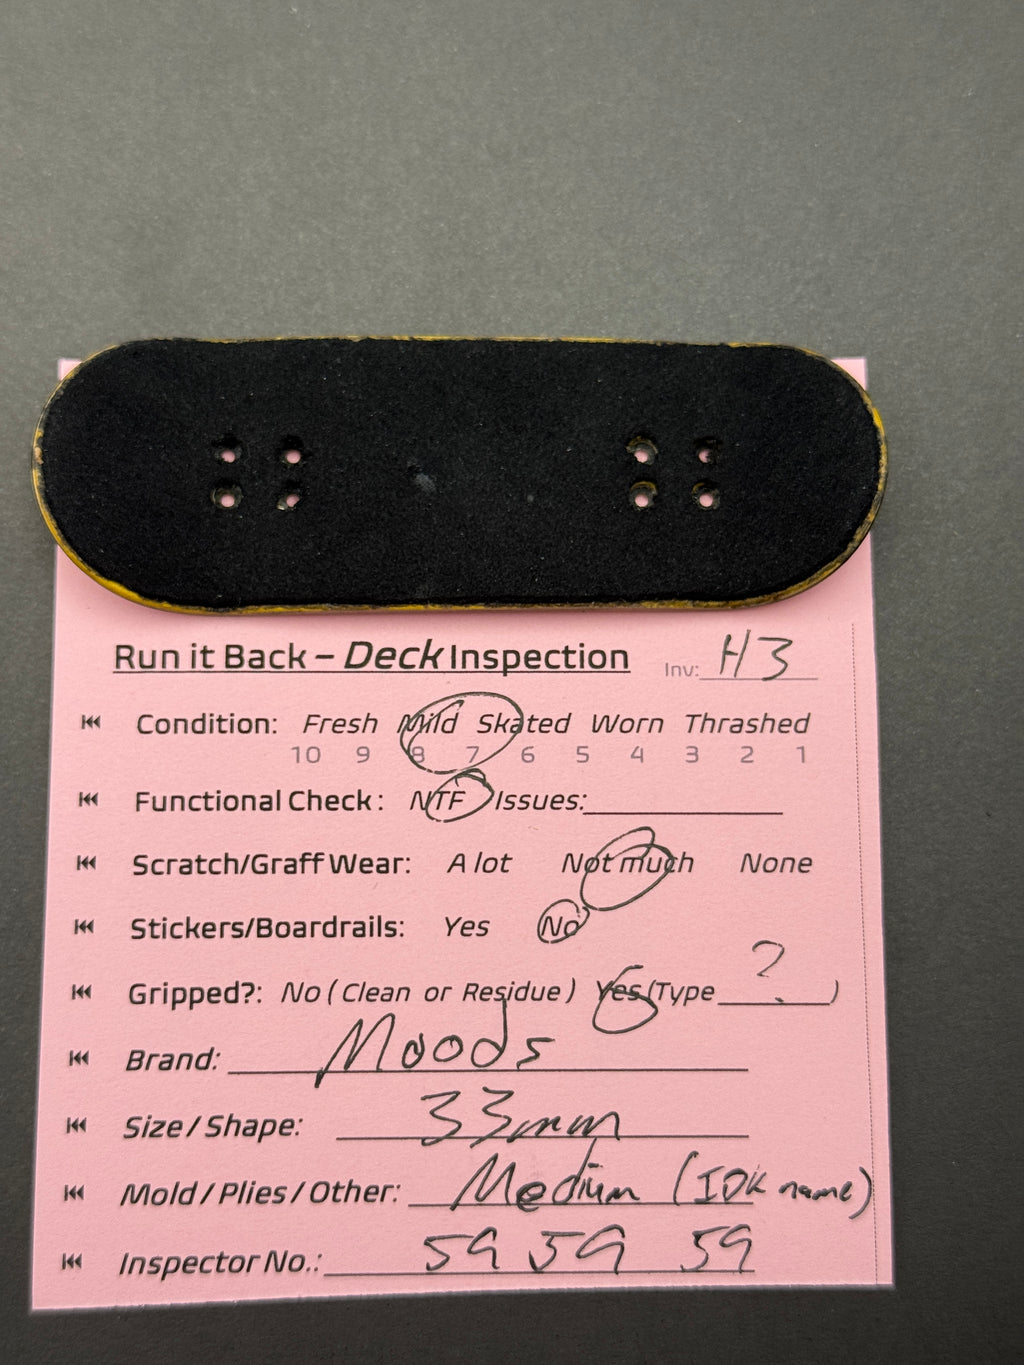 Run it Back – Deck Inspection Inv: H3
Condition: Fresh Mild Skated Worn Thrashed
10 9 8 7 6 5 4 3 2 1
Functional Check: NTF Issues:
Scratch/Graff Wear: A lot Not much None
Stickers/Boardrails: Yes No
Gripped?: No (Clean or Residue) Yes (Type ? )
Brand: Moods
Size / Shape: 33mm
Mold / Plies / Other: Medium (IDK name)
Inspector No.: 59 59 59